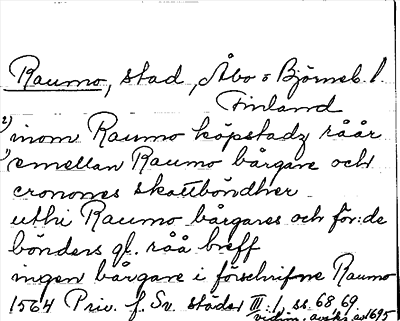 Raumo, stad, Åbo o Björneb. l.
Finland
2) inom Raumo köpstadz råår
1) emellan Raumo bårgare och
cronones skattböndher
uthi Raumo bårgares och för:de
bönders gl. råå breff
ingen bårgare i förschrifne Raumo
1564 Priv. f. Sv. städer III:1, ss. 68 69.
vidim. avskr. av 1695